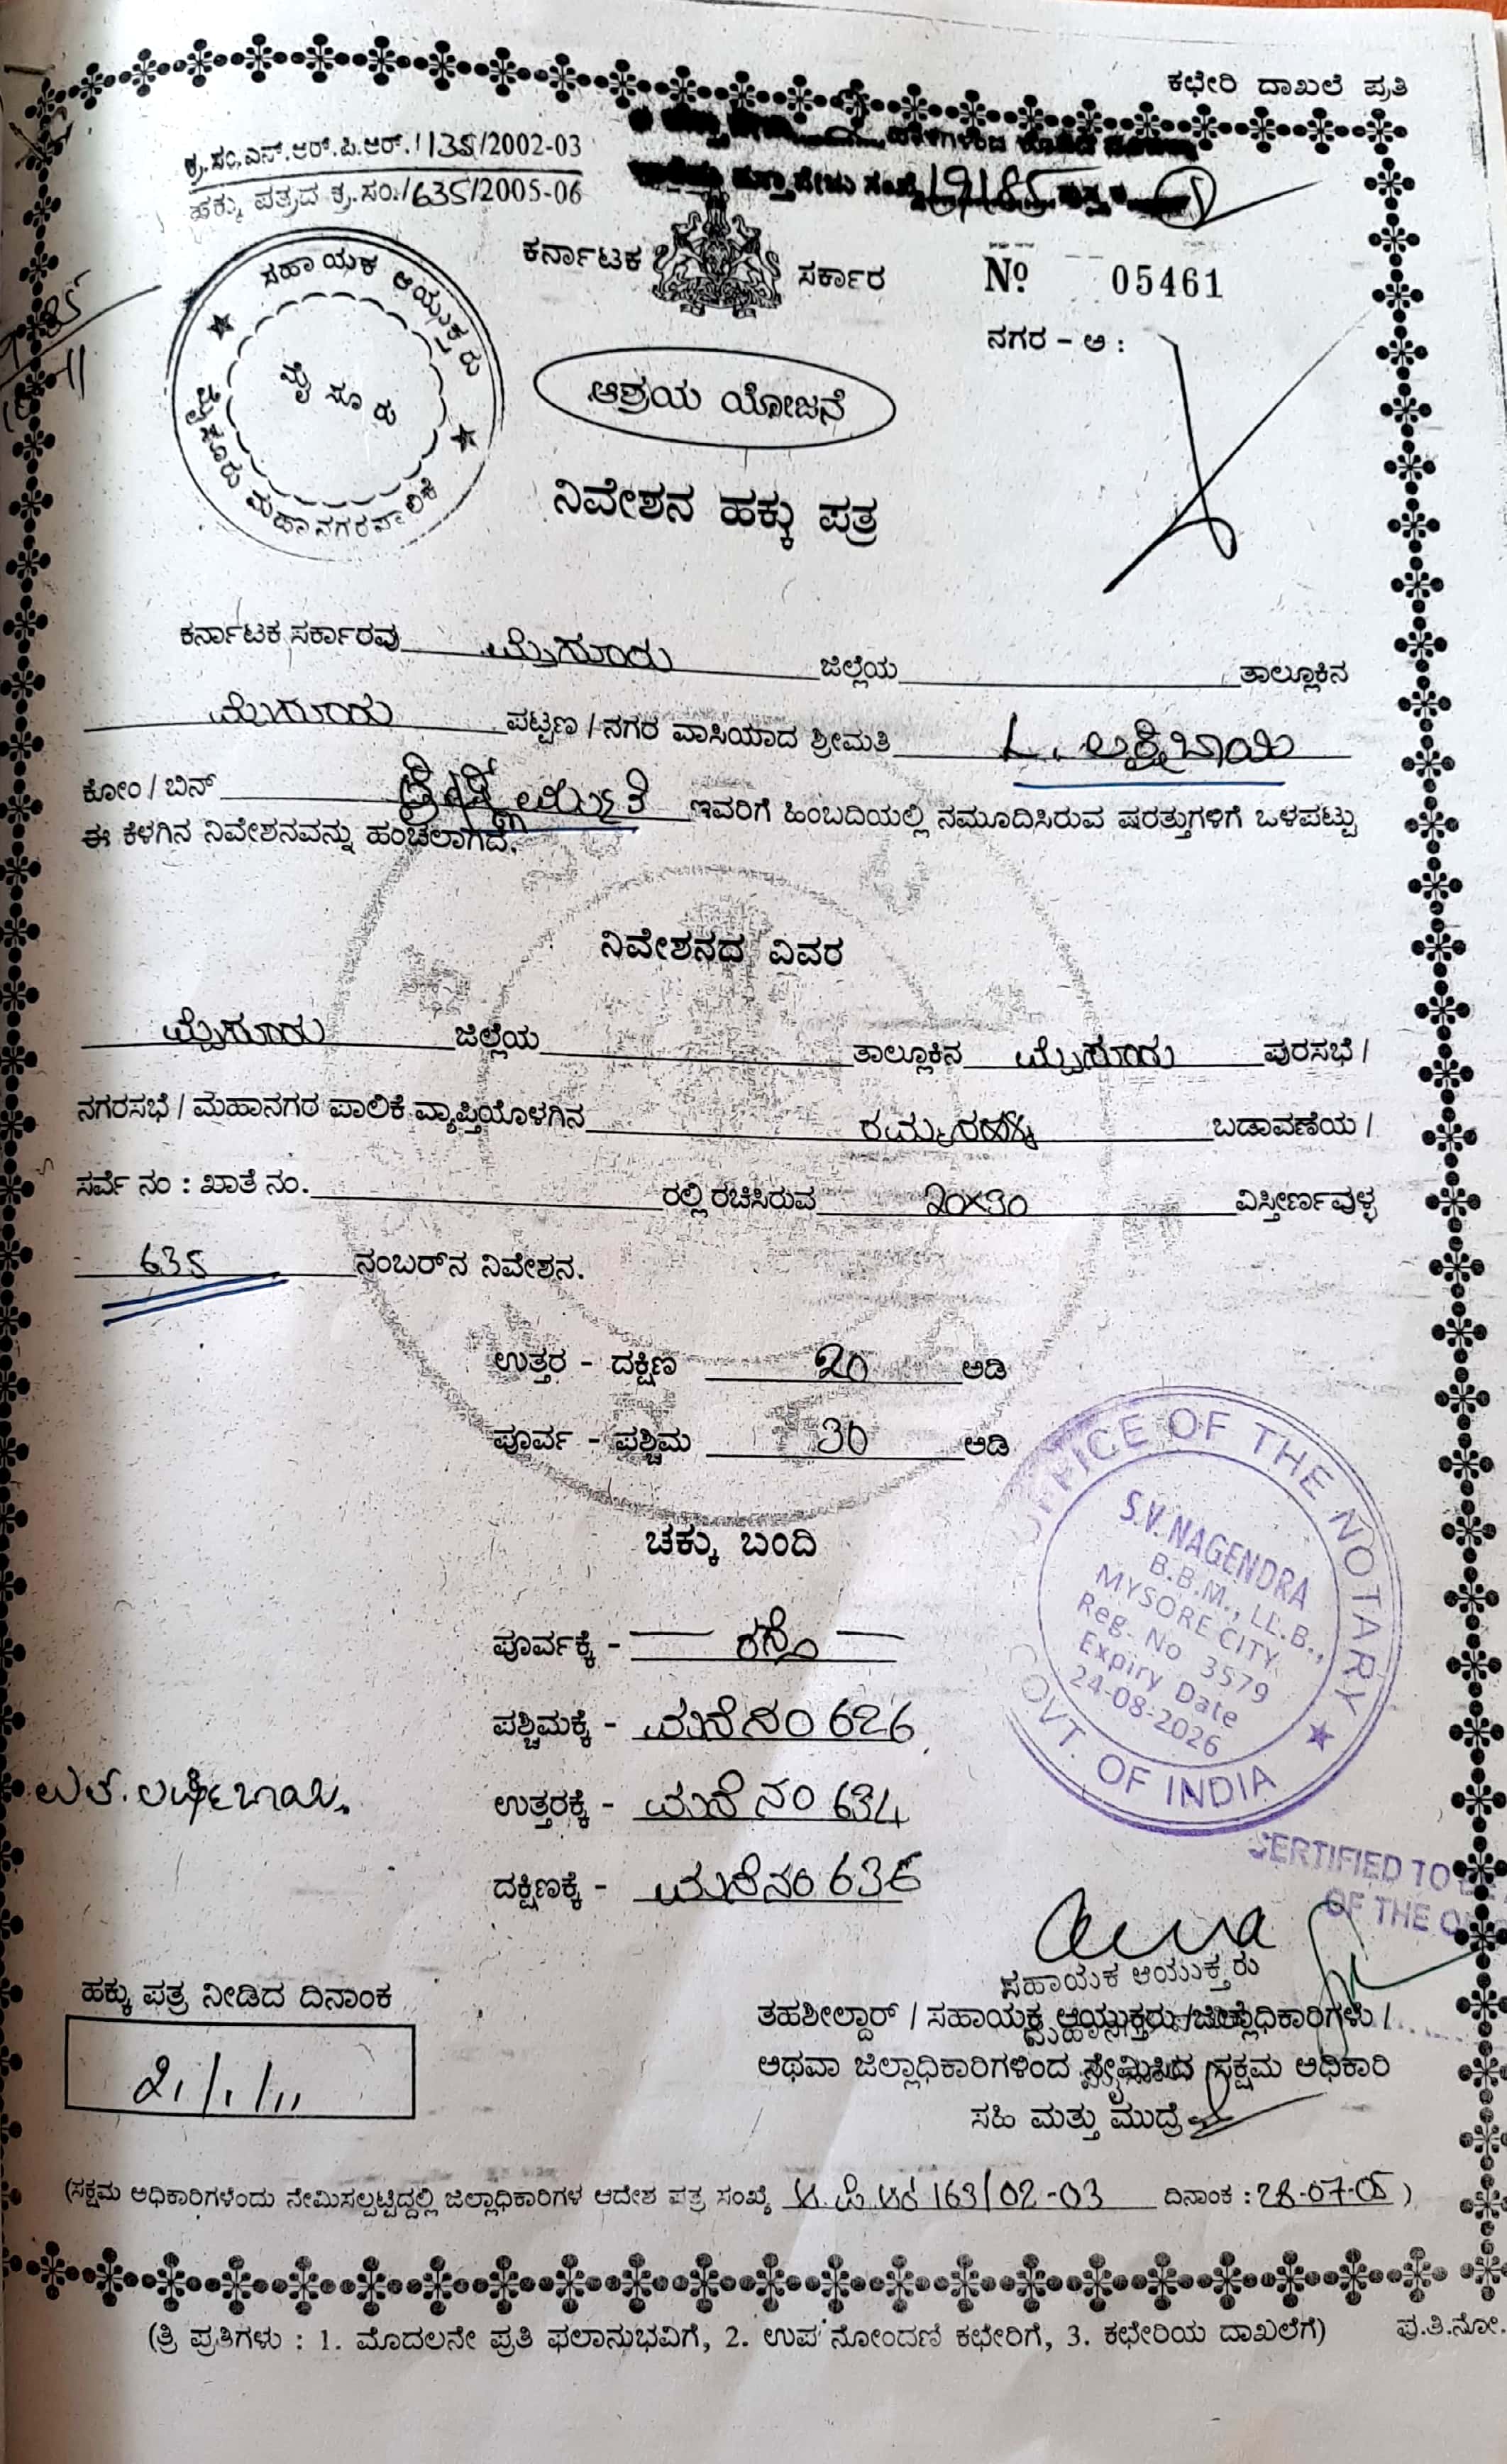 ಕಛೇರಿ ದಾಖಲೆ ಪ್ರತಿ
ಕ್ರ.ಸಂ.ಎನ್.ಆರ್.ಪಿ.ಆರ್.1135/2002-03
ಹಕ್ಕು ಪತ್ರದ ಕ್ರ.ಸಂ./635/2005-06
ಕರ್ನಾಟಕ ಸರ್ಕಾರ
Nº 05461
ನಗರ - ಅ :
ಸಹಾಯಕ ಆಯುಕ್ತರು
ಮೈಸೂರು
ಮೈಸೂರು ಮಹಾನಗರಪಾಲಿಕೆ
ಆಶ್ರಯ ಯೋಜನೆ
ನಿವೇಶನ ಹಕ್ಕು ಪತ್ರ
ಕರ್ನಾಟಕ ಸರ್ಕಾರವು ಮೈಸೂರು ಜಿಲ್ಲೆಯ ತಾಲ್ಲೂಕಿನ
ಮೈಸೂರು ಪಟ್ಟಣ / ನಗರ ವಾಸಿಯಾದ ಶ್ರೀಮತಿ L. ಲಕ್ಷ್ಮೀಬಾಯಿ
ಕೋಂ / ಬಿನ್ ಇವರಿಗೆ ಹಿಂಬದಿಯಲ್ಲಿ ನಮೂದಿಸಿರುವ ಷರತ್ತುಗಳಿಗೆ ಒಳಪಟ್ಟು
ಈ ಕೆಳಗಿನ ನಿವೇಶನವನ್ನು ಹಂಚಲಾಗಿದೆ.
ನಿವೇಶನದ ವಿವರ
ಮೈಸೂರು ಜಿಲ್ಲೆಯ ತಾಲ್ಲೂಕಿನ ಮೈಸೂರು ಪುರಸಭೆ /
ನಗರಸಭೆ / ಮಹಾನಗರ ಪಾಲಿಕೆ ವ್ಯಾಪ್ತಿಯೊಳಗಿನ ಬಡಾವಣೆಯ /
ಸರ್ವೆ ನಂ : ಖಾತೆ ನಂ. ರಲ್ಲಿ ರಚಿಸಿರುವ 20x30 ವಿಸ್ತೀರ್ಣವುಳ್ಳ
635 ನಂಬರ್‌ನ ನಿವೇಶನ.
ಉತ್ತರ - ದಕ್ಷಿಣ 20 ಅಡಿ
ಪೂರ್ವ - ಪಶ್ಚಿಮ 30 ಅಡಿ
ಚಕ್ಕು ಬಂದಿ
ಪೂರ್ವಕ್ಕೆ - ರಸ್ತೆ
ಪಶ್ಚಿಮಕ್ಕೆ - ಮನೆ ನಂ 626
ಉತ್ತರಕ್ಕೆ - ಮನೆ ನಂ 634
ದಕ್ಷಿಣಕ್ಕೆ - ಮನೆ ನಂ 636
OFFICE OF THE NOTARY
S.V. NAGENDRA
B.B.M., LL.B.,
MYSORE CITY
Reg. No 3579
Expiry Date
24-08-2026
GOVT. OF INDIA
CERTIFIED TO
OF THE
ಸಹಾಯಕ ಆಯುಕ್ತರು
ಹಕ್ಕು ಪತ್ರ ನೀಡಿದ ದಿನಾಂಕ
ತಹಶೀಲ್ದಾರ್ / ಸಹಾಯಕ ಆಯುಕ್ತರು / ಜಿಲ್ಲಾಧಿಕಾರಿಗಳು /
ಅಥವಾ ಜಿಲ್ಲಾಧಿಕಾರಿಗಳಿಂದ ನೇಮಿಸಿದ ಸಕ್ಷಮ ಅಧಿಕಾರಿ
ಸಹಿ ಮತ್ತು ಮುದ್ರೆ
(ಸಕ್ಷಮ ಅಧಿಕಾರಿಗಳೆಂದು ನೇಮಿಸಲ್ಪಟ್ಟಿದ್ದಲ್ಲಿ ಜಿಲ್ಲಾಧಿಕಾರಿಗಳ ಆದೇಶ ಪತ್ರ ಸಂಖ್ಯೆ 163/02-03 ದಿನಾಂಕ : 28-07-05 )
(ತ್ರಿ ಪ್ರತಿಗಳು : 1. ಮೊದಲನೇ ಪ್ರತಿ ಫಲಾನುಭವಿಗೆ, 2. ಉಪ ನೋಂದಣಿ ಕಛೇರಿಗೆ, 3. ಕಛೇರಿಯ ದಾಖಲೆಗೆ) ಪು.ತಿ.ನೋ.